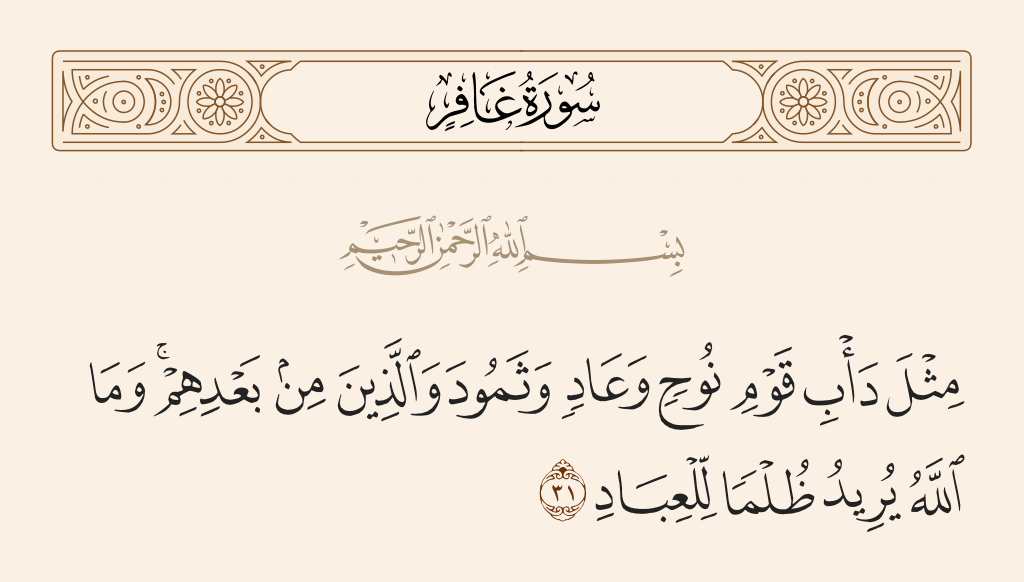 سُورَةُ غَافِرٍ
بِسْمِ ٱللَّهِ ٱلرَّحْمَٰنِ ٱلرَّحِيمِ
مِثْلَ دَأْبِ قَوْمِ نُوحٍ وَعَادٍ وَثَمُودَ وَٱلَّذِينَ مِنۢ بَعْدِهِمْ ۚ وَمَا
ٱللَّهُ يُرِيدُ ظُلْمًا لِّلْعِبَادِ ٣١